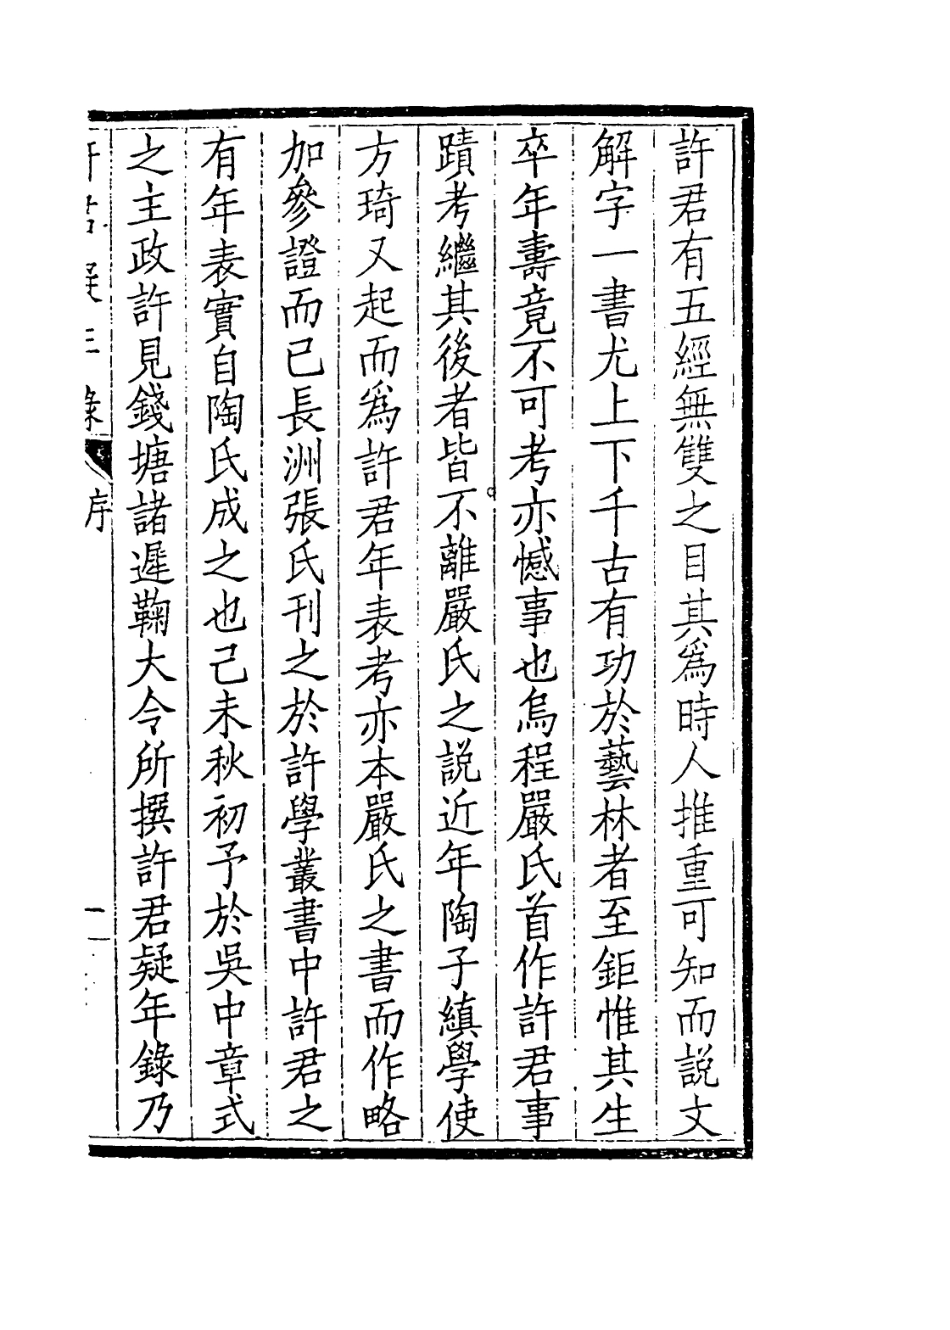 許君有五經無雙之目其爲時人推重可知而説文
解字一書尤上下千古有功於藝林者至鉅惟其生
卒年壽竟不可考亦憾事也烏程嚴氏首作許君事
蹟考繼其後者皆不離嚴氏之説近年陶子縝學使
方琦又起而爲許君年表考亦本嚴氏之書而作略
加參證而已長洲張氏刊之於許學叢書中許君之
有年表實自陶氏成之也己未秋初予於吳中章式
之主政許見錢塘諸遲鞠大令所撰許君疑年錄乃
序
一